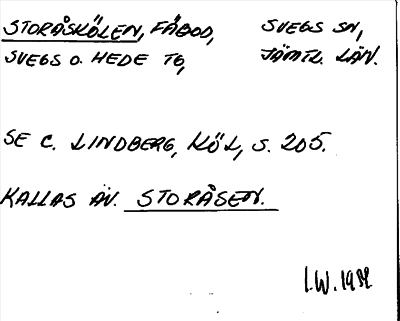 STORÅSKÖLEN, FÄBOD, SVEGS SN,
SVEGS O. HEDE TG, JÄMTL. LÄN.
SE C. LINDBERG, KÖL, S. 205.
KALLAS ÄV. STORÅSEN.
I.W. 1932